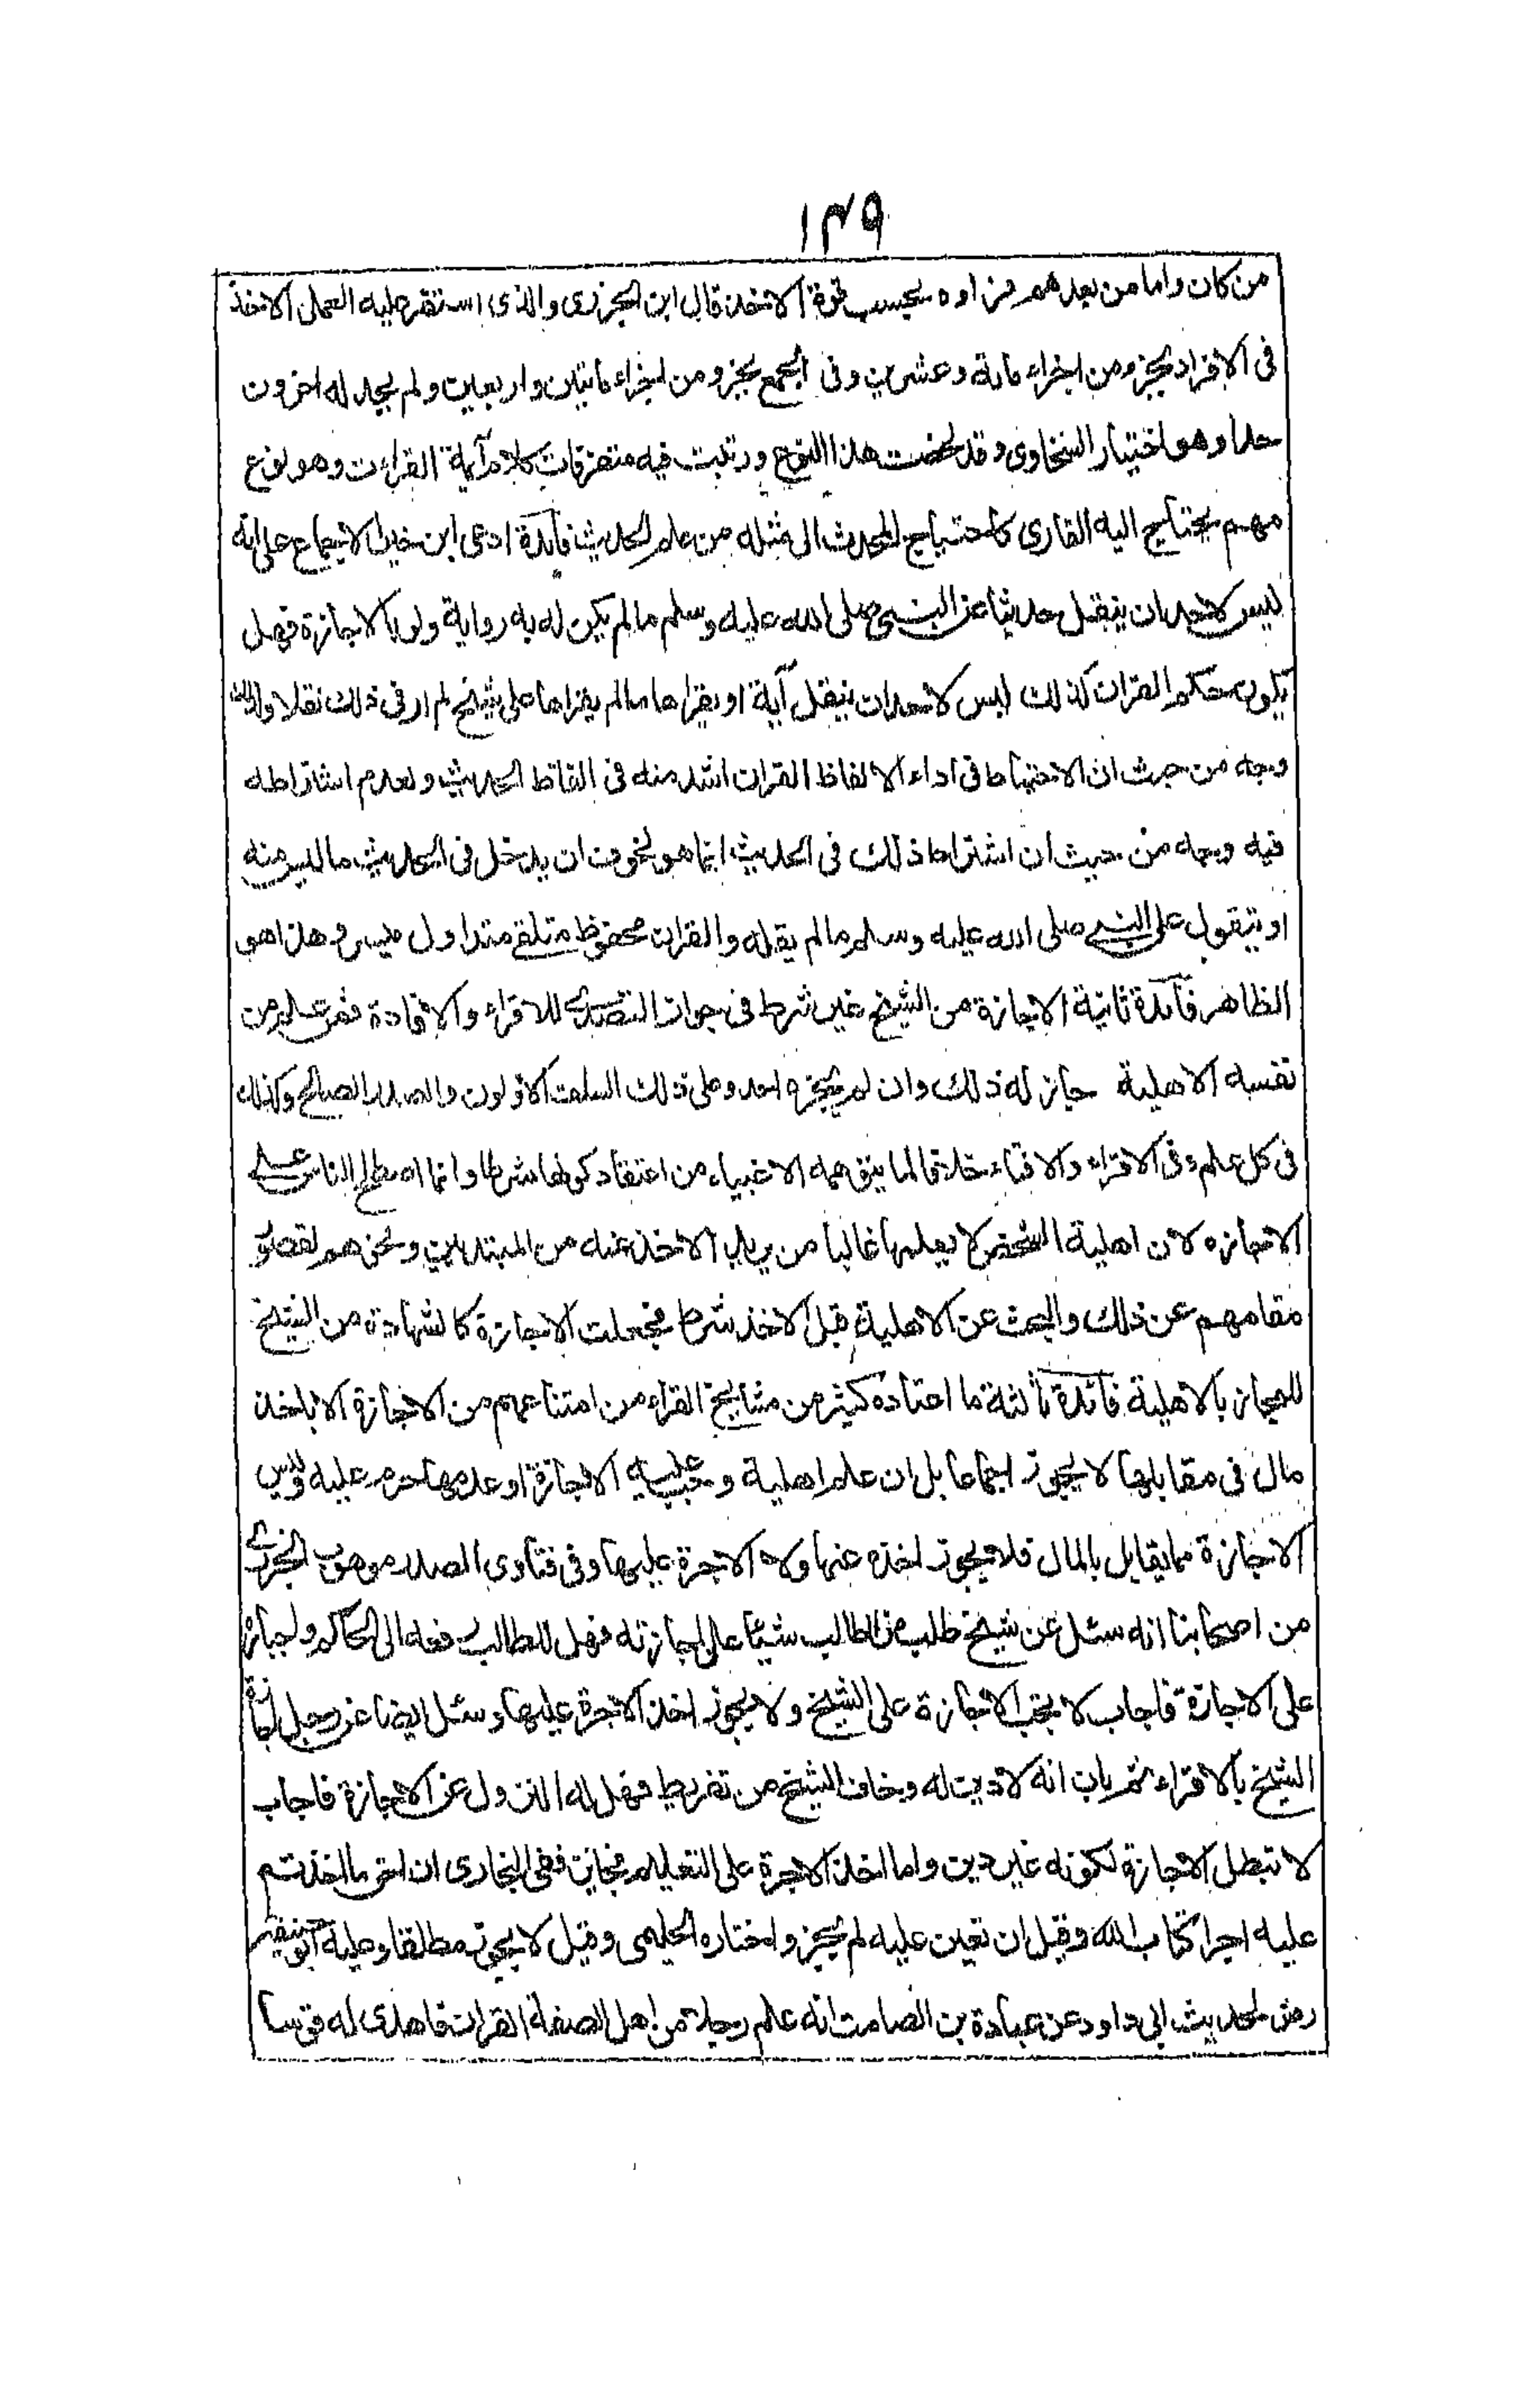 ١٣٩
من كان واما من بعدهم فزادوه بحسب قوة الاخذ قال ابن الجزرى والذى استقر عليه العمل الاخذ
فى الافراد بجزء من اجزاء ماية وعشرين وفى الجمع بجزء من اجزاء مايتين واربعين ولم يحد له اخرون
حدا وهو اختيار السخاوى وقد لخصت هذا النوع ورتبت فيه متفرقات كلام آيمة القراءت وهو نوع
مهم يحتاج اليه القارى كاحتياج المحدث الى مثله من علم الحديث فآئدة ادعى ابن خير الاجماع على انه
ليس لاحد ان ينقل حديثا عن النبى صلى الله عليه وسلم ما لم يكن له به رواية ولو بالاجازة فهل
يكون حكم القران كذلك ليس لاحد ان ينقل آية او يقراها ما لم يقراها على شيخ لم ار فى ذلك نقلا ولذلك
وجه من حيث ان الاحتياط فى اداء الالفاظ القران اشد منه فى الفاظ الحديث ولعدم اشتراطه
فيه وجه من حيث ان اشتراط ذلك فى الحديث انما هو لخوف ان يدخل فى الحديث ما ليس منه
او يتقول على النبى صلى الله عليه وسلم ما لم يقله والقران محفوظ متلقى متداول ميسر وهذا هو
الظاهر فآئدة ثانية الاجازة من الشيخ غير شرط فى جواز التصدى للاقراء والافادة فمن علم من
نفسه الاهلية جاز له ذلك وان لم يجزه احد وعلى ذلك السلف الاولون والصدر الصالح وكذلك
فى كل علم وفى الاقراء والافتاء خلافا لما يتوهمه الاغبياء من اعتقاد كونها شرطا وانما اصطلح الناس على
الاجازه لان اهلية الشخص لا يعلمها غالبا من يريد الاخذ عنه من المبتديين ونحوهم لقصور
مقامهم عن ذلك والبحث عن الاهلية قبل الاخذ شرط فجعلت الاجازة كالشهادة من الشيخ
للمجاز بالاهلية فآئدة ثالثة ما اعتاده كثير من مشايخ القراء من امتناعهم من الاجازة الا باخذ
مال فى مقابلها لا يجوز اجماعا بل ان علم اهلية وجب عليه الاجازة او عدمها حرم عليه وليس
الاجازة مما يقابل بالمال فلا يجوز اخذه عنها ولا الاجرة عليها وفى فتاوى الصدر موهوب الجزرى
من اصحابنا انه سئل عن شيخ طلب من الطالب شيئا على اجازته فهل للطالب رفعه الى الحاكم واجباره
على الاجازة فاجاب لا تجب الاجازة على الشيخ ولا يجوز اخذ الاجرة عليها وسئل ايضا عن رجل اجازه
الشيخ بالاقراء ثم بان انه لا دين له وخاف الشيخ من تفريط فهل له النزول عن الاجازة فاجاب
لا تبطل الاجازة لكونه غير دين واما اخذ الاجرة على التعليم فجايز ففى البخارى ان احق ما اخذتم
عليه اجرا كتاب الله وقيل ان تعين عليه لم يجز واختاره الحليمى وقيل لا يجوز مطلقا وعليه ابو حنيفة
لحديث ابى داود عن عبادة بن الصامت انه علم رجلا من اهل الصفة القران فاهدى له قوسا